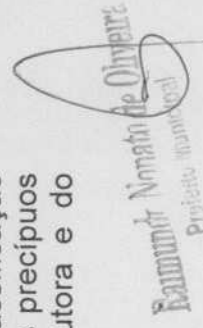 precípuos
utora e do
Raimundo Nonato de Oliveira
Prefeito Municipal